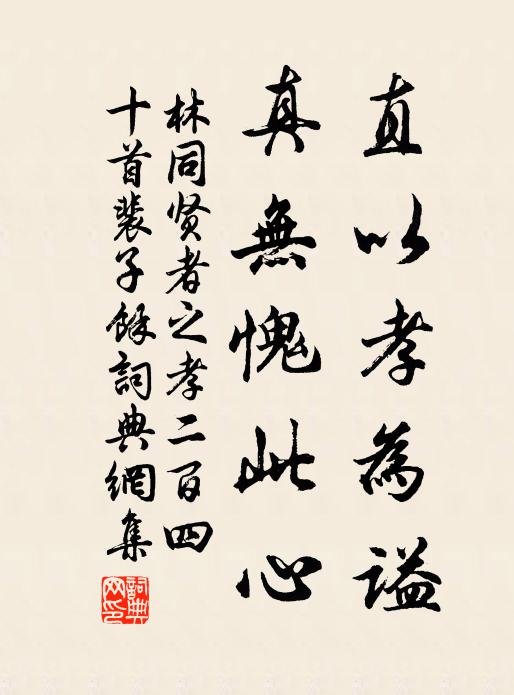 直以孝為謚
真無愧此心
林同贤者之孝二百四
十首裴子餘詞典網集
詞典
网印